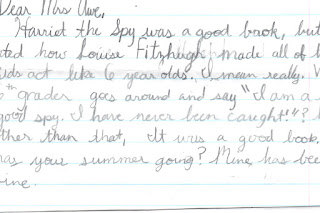 Dear Mrs Awe,
Harriet the Spy was a good book, but
ted how Louise Fitzhugh made all of
ids act like 6 year olds. I mean really.
th grader goes around and say "I am a
good spy. I have never been caught!"?
ther than that, It was a good book.
as your summer going? Mine has bee
ine.